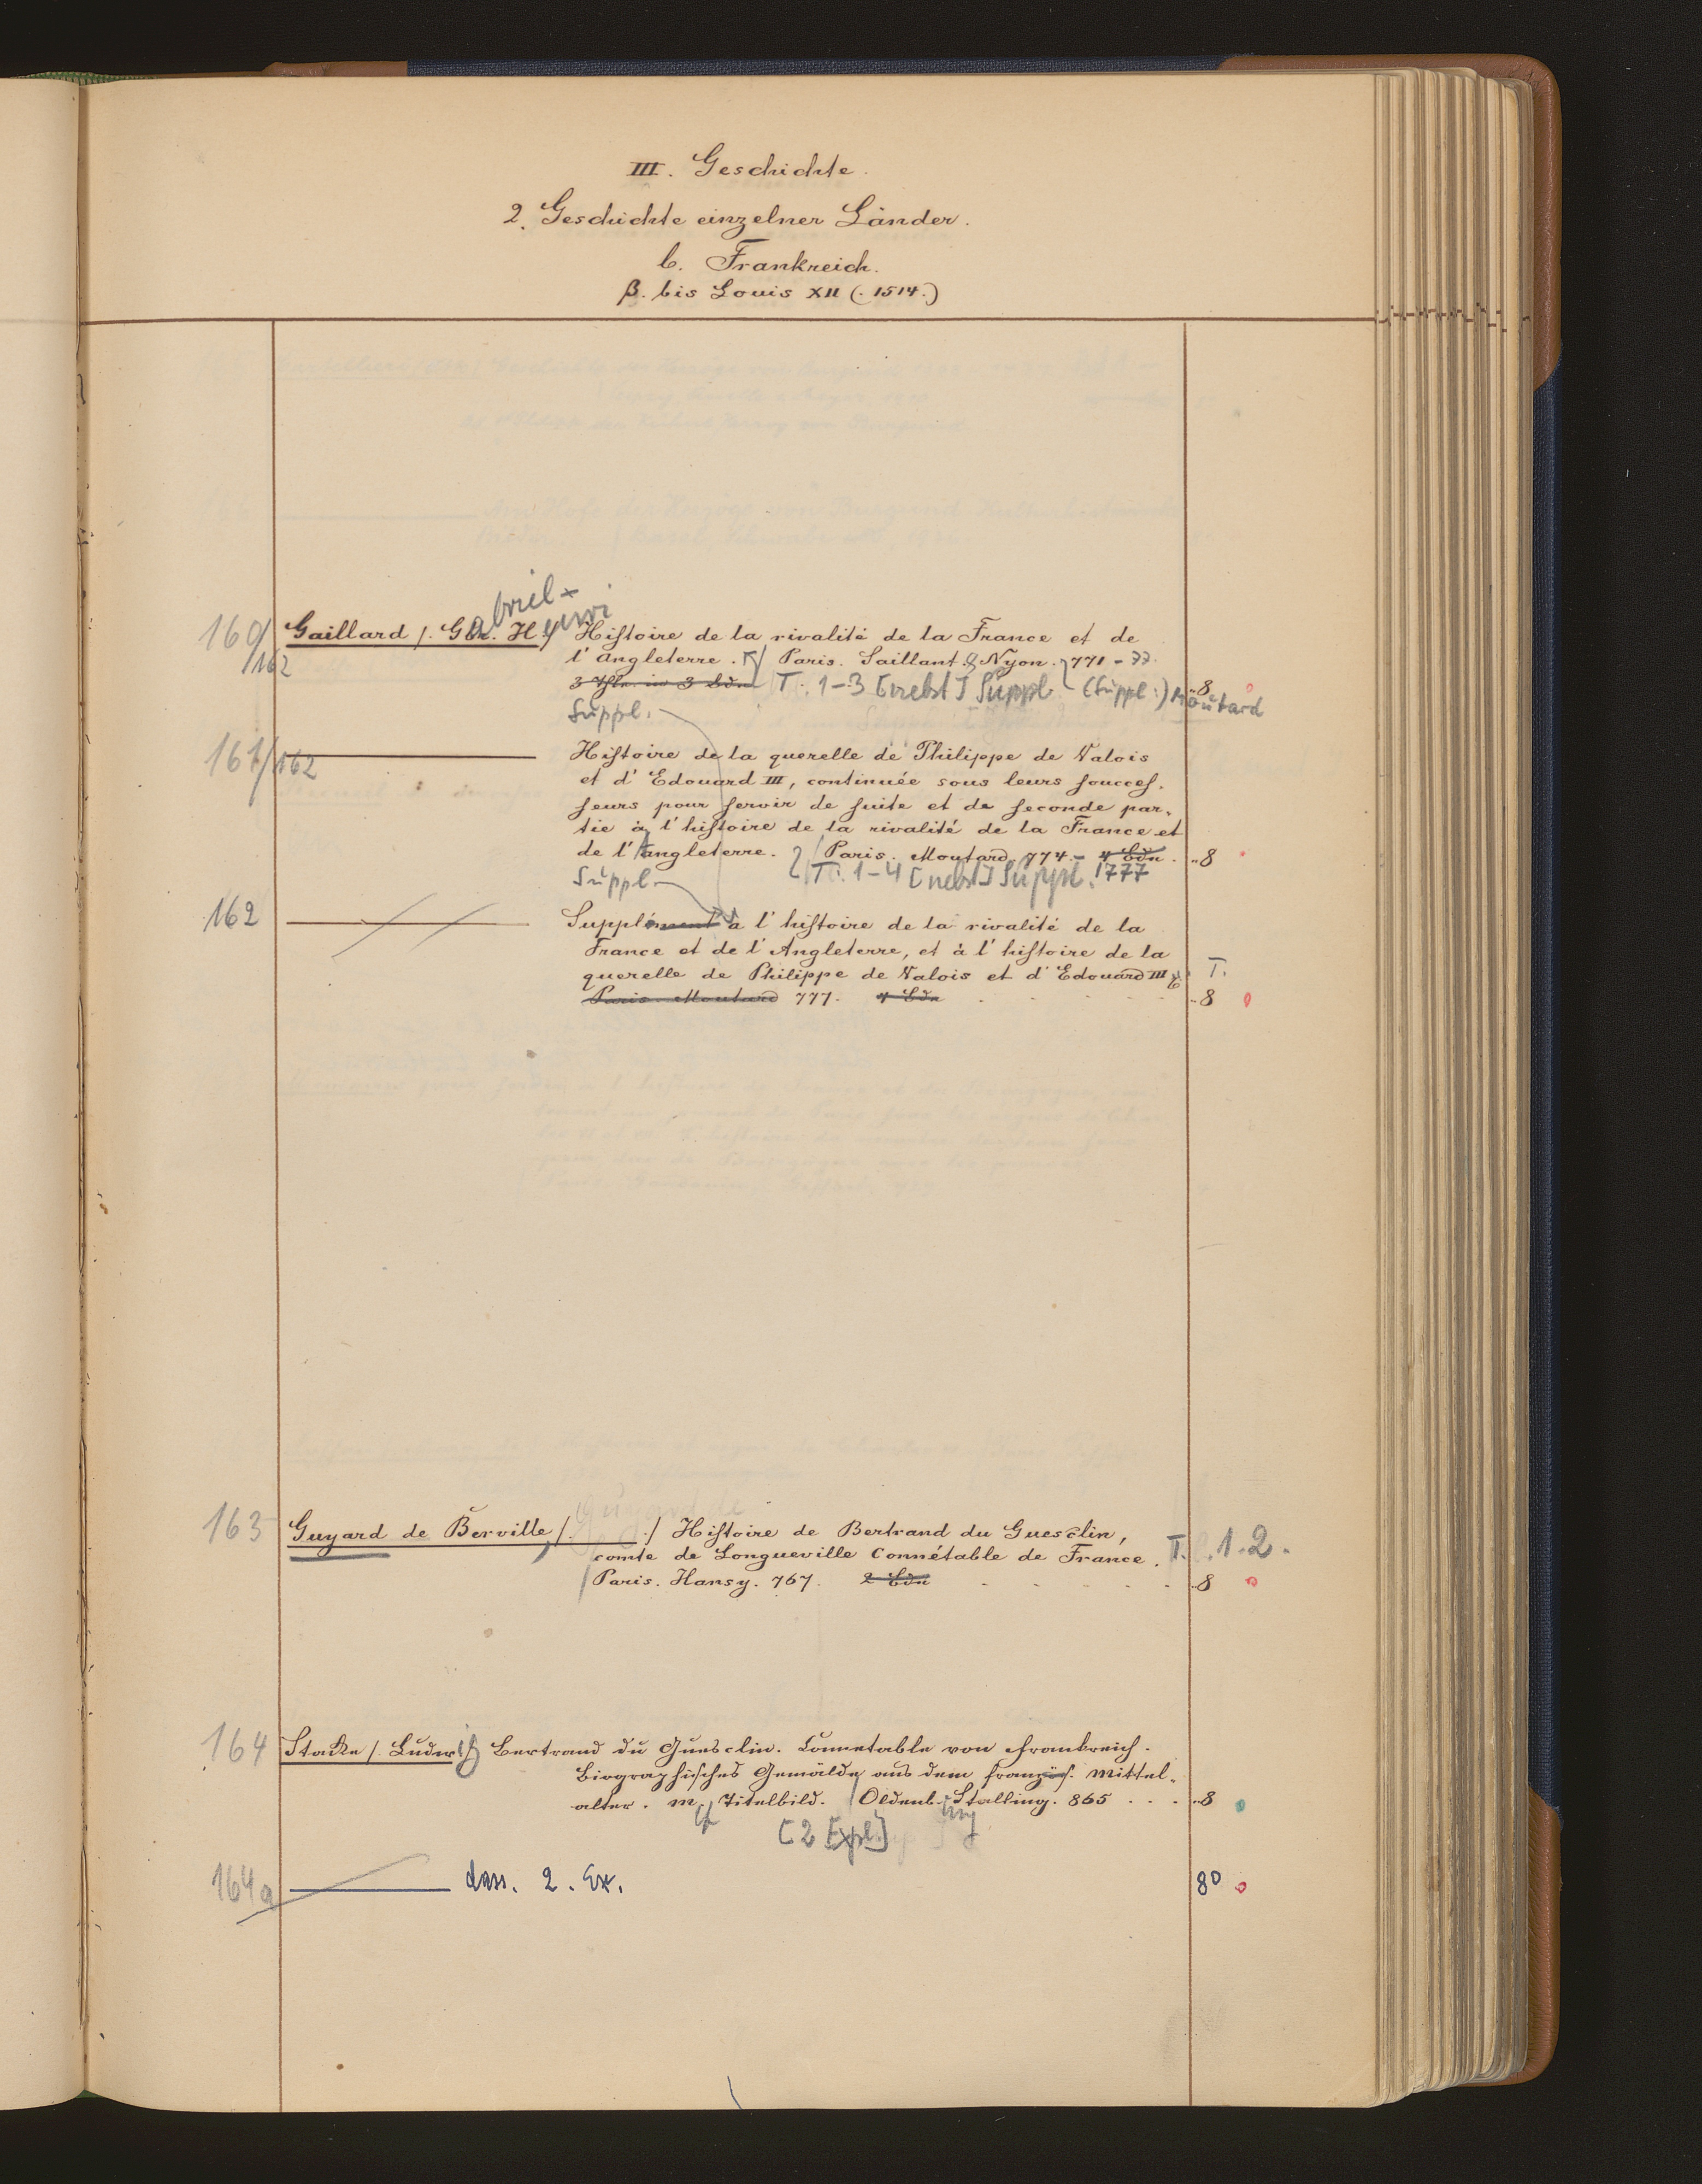 III. Geschichte.
2. Geschichte einzelner Länder.
b. Frankreich.
β. bis Louis XII (. 1514.)
abriel-
enri
160/ Gaillard /. Gbr. H./ Hiſtoire de la rivalité de la France et de
/162 l'Angleterre. Paris. Saillant & Nyon. 771-77.
3 Thle in 3 Bdn T. 1-3 [nebst] Suppl. (Suppl.:) Moutard ..8
Suppl.
161/162 Hiſtoire de la querelle de Philippe de Valois
et d'Edouard III, continuée sous leurs ſouccеſ-
ſeurs pour ſervir de ſuite et de ſeconde par-
tie à l'hiſtoire de la rivalité de la France et
de l'angleterre. Paris. Moutard. 774- 4 Bdn. ..8
Suppl. T. 1-4 [nebst] Suppl. 1777
162 Supplément à l'hiſtoire de la rivalité de la
France et de l'Angleterre, et à l'hiſtoire de la
querelle de Philippe de Valois et d'Edouard III T.
Paris Moutard 777. 4 Bdn ..8
163 Guyard de Berville, /. ./ Hiſtoire de Bertrand du Guesclin,
comte de Longueville Connétable de France. T. 1.2.
Paris. Hansy. 767. 2 Bdn ..8
164 Stacke /. Ludwig Bertrand du Guesclin. Connetable von Frankreich.
Biographiſches Gemälde aus dem franzöſ. Mittel-
alter. M. Titelbild. Oldenb. Stalling. 865 ..8
[2 Expl.]
164a dass. 2. Ex. 8°